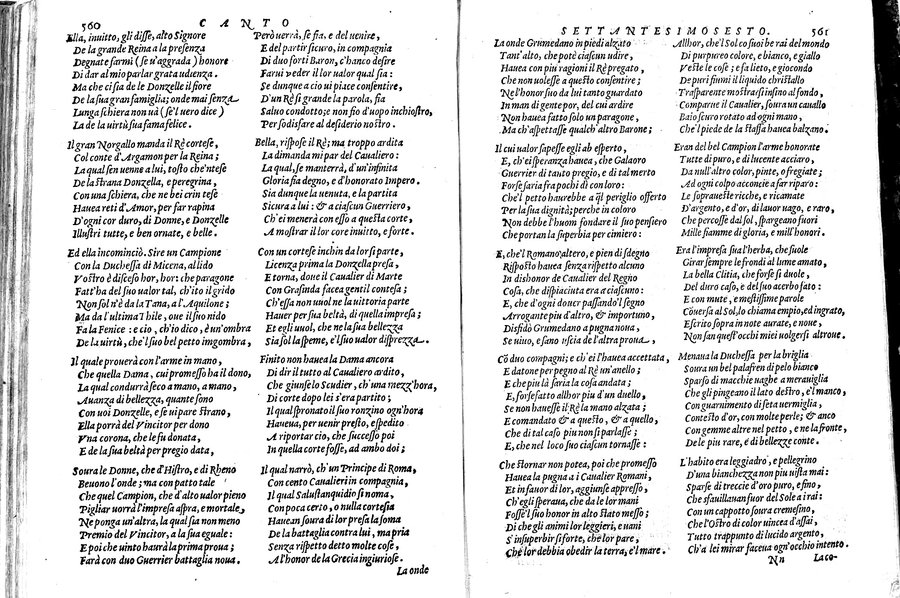 560 CANTO
Ella, inuitto, gli disse, alto Signore
De la grande Reina a la presenza
Degnate farmi (se u'aggrada) honore
Di dar al mio parlar grata udienza.
Ma che ci sia de le Donzelle il fiore
De la sua gran famiglia; onde mai senza
Lunga schiera non uà (se'l uero dice)
La de la uirtù sua fama felice.
Il gran Norgallo manda il Rè cortese,
Col conte d'Argamon per la Reina;
La qual sen uenne a lui, tosto che'ntese
De la strana Donzella, e peregrina,
Con una schiera, che ne bei crin tese
Hauea reti d'Amor, per far rapina
D'ogni cor duro, di Donne, e Donzelle
Illustri tutte, e ben ornate, e belle.
Ed ella incominciò. Sire un Campione
Con la Duchessa di Micena, al lido
Vostro è disceso hor, hor: che paragone
Fatt'ha del suo ualor tal, ch'ito il grido
Non sol n'è da la Tana, a l'Aquilone;
Ma da l'ultima Thile, oue il suo nido
Fa la Fenice: e cio, ch'io dico, è un'ombra
De la uirtù, che'l suo bel petto imgombra,
Il quale prouerà con l'arme in mano,
Che quella Dama, cui promesso ha il dono,
La qual condurrà seco a mano, a mano,
Auanza di bellezza, quante sono
Con uoi Donzelle, e se ui pare strano,
Ella porrà del Vincitor per dono
Vna corona, che le fu donata,
E de la sua beltà per pregio data,
Soura le Donne, che d'Histro, e di Rheno
Beuono l'onde; ma con patto tale
Che quel Campion, che d'alto ualor pieno
Pigliar uorrà l'impresa aspra, e mortale,
Ne ponga un'altra, la qual sia non meno
Premio del Vincitor, a la sua eguale:
E poi che uinto haurà la prima proua;
Farà con duo Guerrier battaglia noua.
Però uerrà, se fia, e del uenire,
E del partir sicuro, in compagnia
Di duo forti Baron, c'hanno desire
Farui veder il lor ualor qual sia:
Se dunque a cio ui piace consentire,
D'un Rè si grande la parola, fia
Saluo condotto; e non fio d'uopo inchiostro,
Per sodisfare al desiderio nostro.
Bella, rispose il Rè; ma troppo ardita
La dimanda mi par del Caualiero:
La qual, se manterrà, d'un'infinita
Gloria fia degno, e d'honorato Impero.
Sia dunque la uenuta, e la partita
Sicura a lui: & a ciascun Guerriero,
Ch'ei menerà con esso a questa corte,
A mostrar il lor core inuitto, e forte.
Con un cortese inchin da lor si parte,
Licenza prima la Donzella presa,
E torna, doue il Caualier di Marte
Con Grasinda facea gentil contesa;
Ch'essa non uuol ne la uittoria parte
Hauer per sua beltà, di quella impresa;
Et egli uuol, che ne la sua bellezza
Sia sol la speme, e'l suo ualor disprezza.
Finito non hauea la Dama ancora
Di dir il tutto al Caualiero ardito,
Che giunse lo Scudier, ch'una mezz'hora,
Di corte dopo lei s'era partito;
Il qual spronato il suo ronzino ogn'hora
Hauea, per uenir presto, e spedito
A riportar cio, che successo poi
In quella corte fosse, ad ambo doi;
Il qual narrò, ch'un Principe di Roma,
Con cento Caualieri in compagnia,
Il qual Salustanquidio si noma,
Con poca certo, o nulla cortesia
Hauean soura di lor presa la soma
De la battaglia contra lui, ma pria
Senza rispetto detto molte cose,
A l'honor de la Grecia ingiuriose.
La onde
SETTANTESIMOSESTO. 561
La onde Grumedano in piedi alzato
Tant'alto, che potè ciascun udire,
Hauea con piu ragioni il Rè pregato,
Che non uolesse a questo consentire;
Nel'honor suo da lui tanto guardato
In man di gente por, del cui ardire
Non hauea fatto solo un paragone,
Ma ch'aspettasse qualch'altro Barone;
Il cui ualor sapesse egli ab esperto,
E, ch'ei speranza hauea, che Galaoro
Guerrier di tanto pregio, e di tal merto
Forse saria fra pochi dì con loro:
Che'l petto haurebbe a ql periglio offerto
Per la sua dignità; perche in coloro
Non debbe l'huom fondare il suo pensiero
Che portan la superbia per cimiero:
E, che'l Romano altero, e pien di sdegno
Risposto hauea senza rispetto alcuno
In dishonor de Caualier del Regno
Cosa, che dispiaciuta era a ciascuno:
E, che d'ogni douer passando'l segno
Arrogante piu d'altro, & importuno,
Disfidò Grumedano a pugna noua,
Se uiuo, e sano uscia de l'altra proua,
Cō duo compagni; e ch'ei l'hauea accettata,
E datone per pegno al Rè un'anello;
E che piu là saria la cosa andata;
E, forse fatto allhor piu d'un duello,
Se non hauesse il Rè la mano alzata;
E comandato & a questo, & a quello,
Che di tal caso piu non si parlasse;
E, che nel loco suo ciascun tornasse:
Che stornar non potea, poi che promesso
Hauea la pugna a i Caualier Romani,
Et in fauor di lor, aggiunse appresso,
Ch'egli speraua, che da le lor mani
Fosse'l suo honor in alto stato messo;
Di che gli animi lor leggieri, e uani
S'insuperbir si forte, che lor pare,
Che lor debbia obedir la terra, e'l mare.
Allhor, che'l Sol co suoi be rai del mondo
Di purpureo colore, e bianco, e giallo
Veste le cose; e fa lieto, e giocondo
De puri fiumi il liquido christallo
Trasparente mostrasi insino al fondo,
Comparue il Caualier, soura un cauallo
Baio scuro rotato ad ogni mano,
Che'l piede de la staffa hauea balzano.
Eran del bel Campion l'arme honorate
Tutte di puro, e di lucente acciaro,
Da null'altro color, pinte, o fregiate;
Ad ogni colpo acconcie a far riparo:
Le soprauesti ricche, e ricamate
D'argento, e d'or, di lauor uago, e raro,
Che percosse dal sol, spargean fuori
Mille fiamme di gloria, e mill'honori.
Era l'impresa sua l'herba, che suole
Girar sempre le frondi al lume amato,
La bella Clitia, che forse si duole,
Del duro caso, e del suo acerbo fato:
E con mute, e mestissime parole
Cōuersa al Sol, lo chiama empio, ed ingrato,
Escritto sopra in note aurate, e noue,
Non fan quest'occhi miei uolgersi altroue.
Menaua la Duchessa per la briglia
Soura un bel palafren di pelo bianco
Sparso di macchie uaghe a merauiglia
Che gli pingeano il lato destro, e'l manco,
Con guarnimento di seta uermiglia,
Contesto d'or, con molte perle; & anco
Con gemme altre nel petto, e ne la fronte,
De le piu rare, e di bellezze conte.
L'habito era leggiadro, e pellegrino
D'una bianchezza non piu uista mai:
Sparse di treccie d'oro puro, e fino,
Che sfauillauan fuor del Sole a i rai:
Con un cappotto soura cremesino,
Che l'Ostro di color uincea d'assai,
Tutto trappunto di lucido argento,
Ch'a lei mirar facea ogn'occhio intento.
Nn La co-